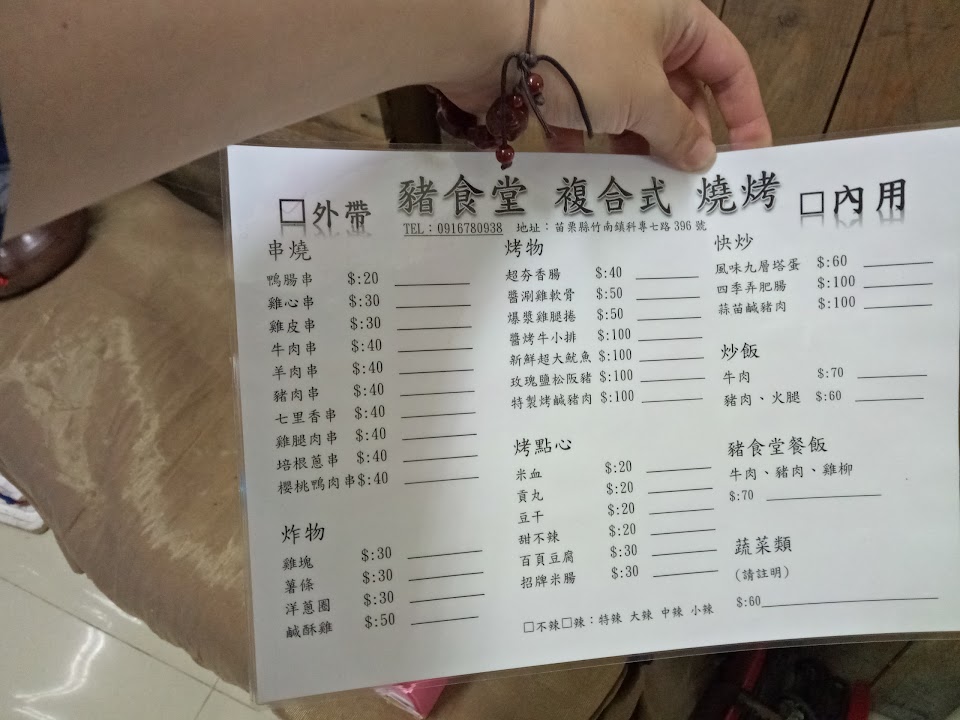 □外帶 豬食堂 複合式 燒烤 □內用
TEL：0916780938 地址：苗栗縣竹南鎮科專七路396號
串燒
鴨腸串 $:20
雞心串 $:30
雞皮串 $:30
牛肉串 $:40
羊肉串 $:40
豬肉串 $:40
七里香串 $:40
雞腿肉串 $:40
培根蔥串 $:40
櫻桃鴨肉串$:40
炸物
雞塊 $:30
薯條 $:30
洋蔥圈 $:30
鹹酥雞 $:50
烤物
超夯香腸 $:40
醬涮雞軟骨 $:50
爆漿雞腿捲 $:50
醬烤牛小排 $:100
新鮮超大魷魚 $:100
玫瑰鹽松阪豬 $:100
特製烤鹹豬肉 $:100
烤點心
米血 $:20
貢丸 $:20
豆干 $:20
甜不辣 $:20
百頁豆腐 $:30
招牌米腸 $:30
□不辣□辣：特辣 大辣 中辣 小辣
快炒
風味九層塔蛋 $:60
四季弄肥腸 $:100
蒜苗鹹豬肉 $:100
炒飯
牛肉 $:70
豬肉、火腿 $:60
豬食堂餐飯
牛肉、豬肉、雞柳
$:70
蔬菜類
(請註明)
$:60